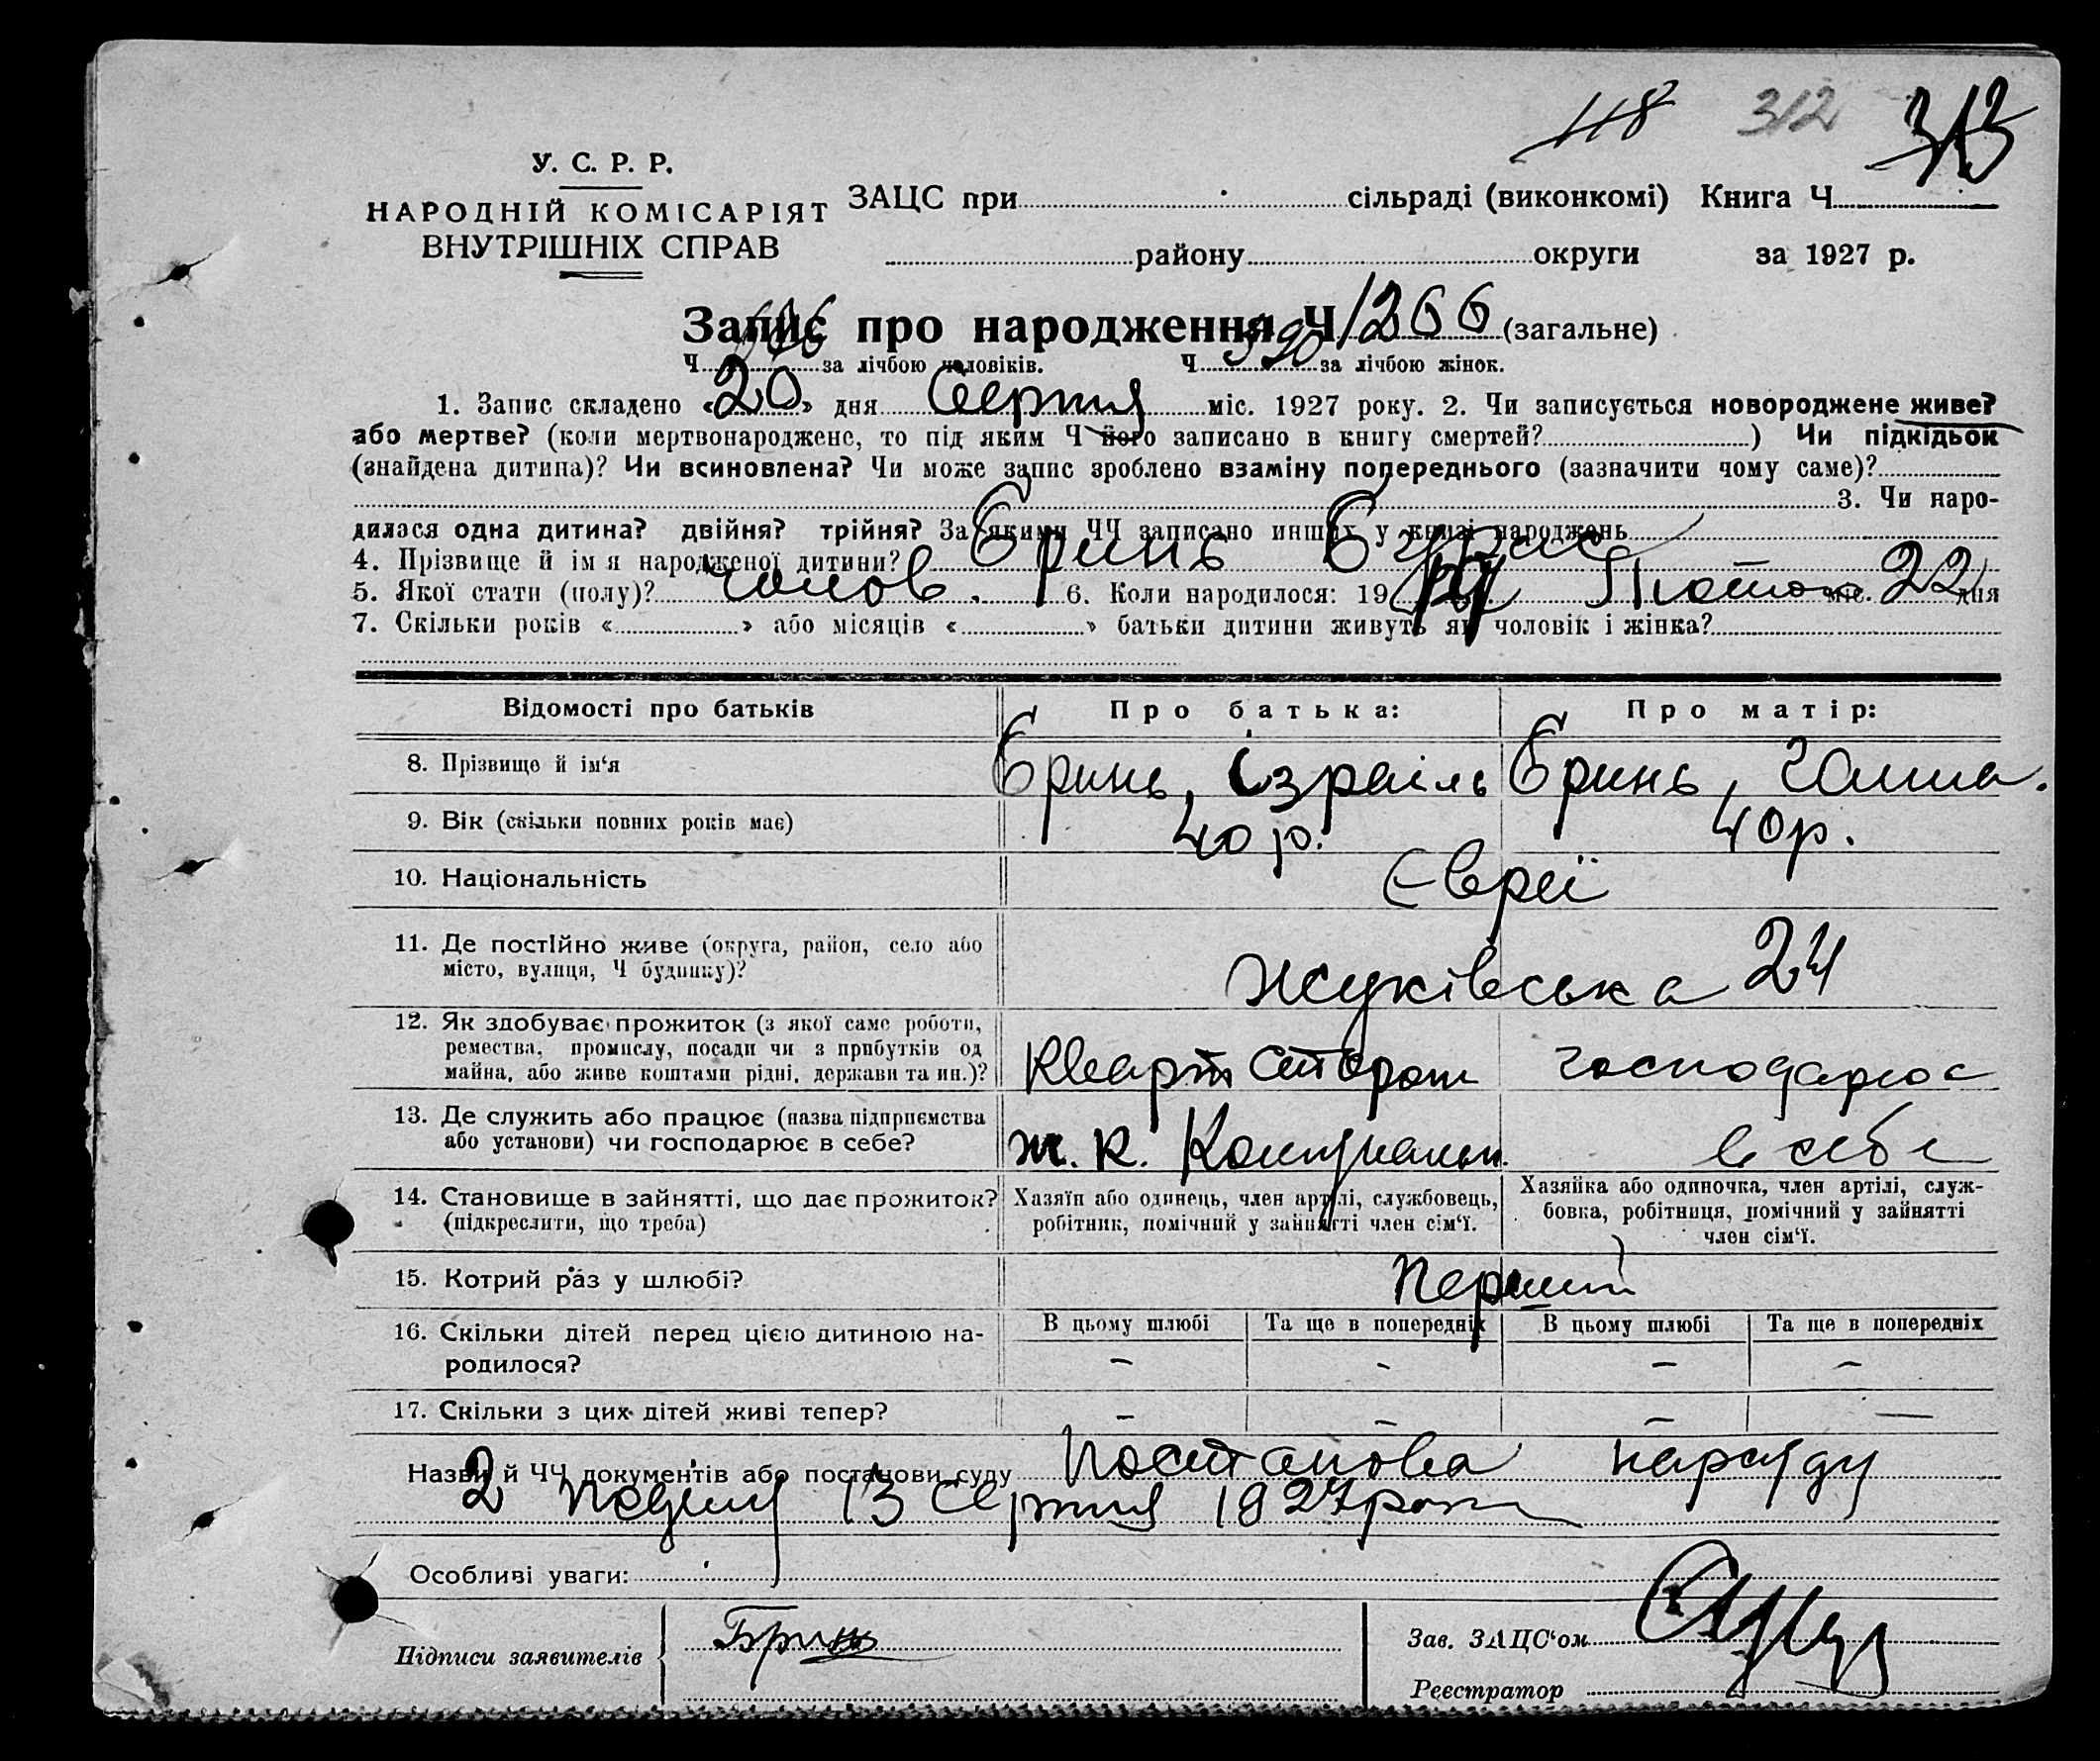 118 312 313
У. С. Р. Р.
НАРОДНІЙ КОМІСАРІЯТ
ВНУТРІШНІХ СПРАВ
ЗАЦС при сільраді (виконкомі) Книга Ч
району округи за 1927 р.
Запис про народження Ч 1266 (загальне)
Ч за лічбою чоловіків. Ч 590 за лічбою жінок.
1. Запис складено « 20 » дня Серпня міс. 1927 року. 2. Чи записується новороджене живе?
або мертве? (коли мертвонароджене, то під яким Ч його записано в книгу смертей? ) Чи підкідьок
(знайдена дитина)? Чи всиновлена? Чи може запис зроблено взаміну попереднього (зазначити чому саме)?
3. Чи наро-
дилася одна дитина? двійня? трійня? За якими ЧЧ записано инших у книзі народжень
4. Прізвище й ім я народженої дитини? Бринь
5. Якої стати (полу)? чолов. 6. Коли народилося: 19 Лютого міс. 22 дня
7. Скільки років « » або місяців « » батьки дитини живуть як чоловік і жінка?
Відомості про батьків Про батька: Про матір:
8. Прізвище й ім‘я Бринь, Ізраіль Бринь,
9. Вік (скільки повних років має) 40 р. 40 р.
10. Національність Євреї
11. Де постійно живе (округа, район, село або
місто, вулиця, Ч будинку)? Жуківська 24
12. Як здобуває прожиток (з якої саме роботи,
ремества, промислу, посади чи з прибутків од
майна, або живе коштами рідні, держави та ин.)? Кварт сторож господарює
13. Де служить або працює (назва підприємства
або установи) чи господарює в себе? ж. к. Комунальн. в себе
14. Становище в зайнятті, що дає прожиток?
(підкреслити, що треба)
Хазяїн або одинець, член артілі, службовець,
робітник, помічний у зайнятті член сім‘ї.
Хазяйка або одиночка, член артілі, служ-
бовка, робітниця, помічний у зайнятті
член сім‘ї.
15. Котрий раз у шлюбі? перший
16. Скільки дітей перед цією дитиною на-
родилося?
В цьому шлюбі Та ще в попередніх В цьому шлюбі Та ще в попередніх
– – – –
17. Скільки з цих дітей живі тепер? – – – –
Назви й ЧЧ документів або постанови суду Постанова нарсуду
2 13 Серпня 1927 року
Особливі уваги:
Підписи заявителів Бринь
Зав. ЗАЦС‘ом
Реєстратор